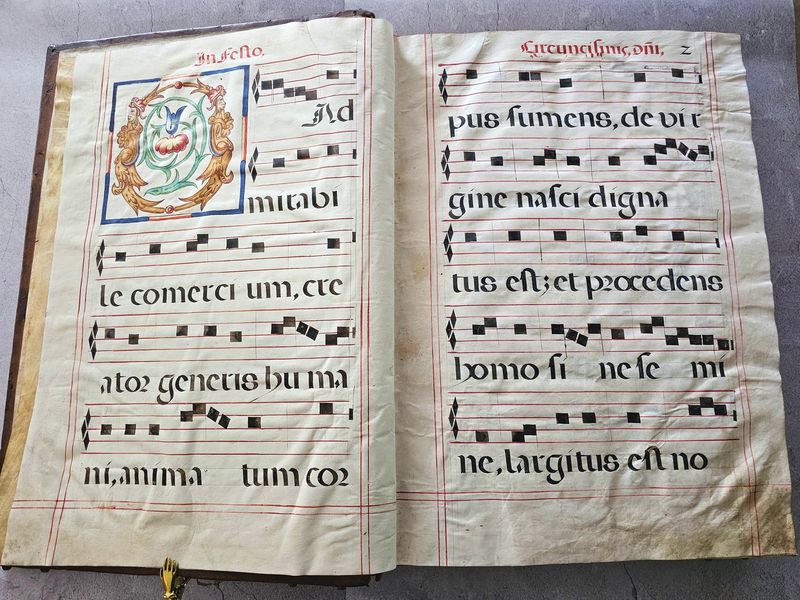 In Feſto.
Ad
mirabi
le comerci um, cre
ator generis hu ma
ni, anima tum cor
Circunciſinis, dñi, 2
pus ſumens, de vi r
gine naſci digna
tus eſt; et procedens
homo ſi ne ſe mi
ne, largitus eſt no